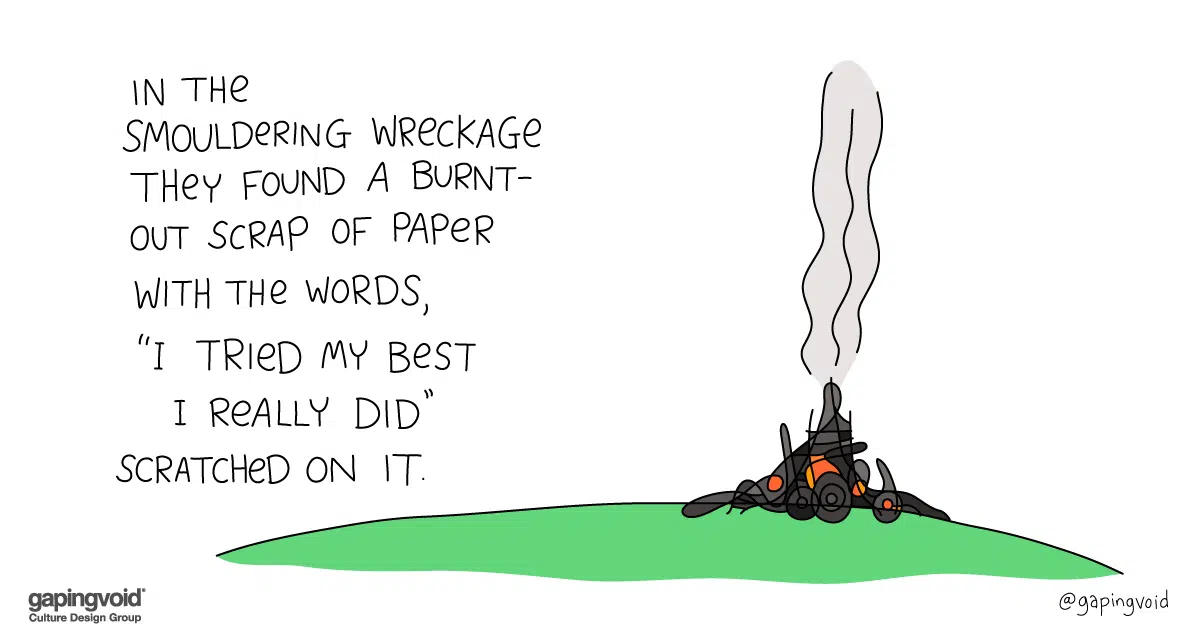 IN THE
SMOULDERING WRECKAGE
THEY FOUND A BURNT-
OUT SCRAP OF PAPER
WITH THE WORDS,
"I TRIED MY BEST
I REALLY DID"
SCRATCHED ON IT.
gapingvoid®
Culture Design Group
@gapingvoid